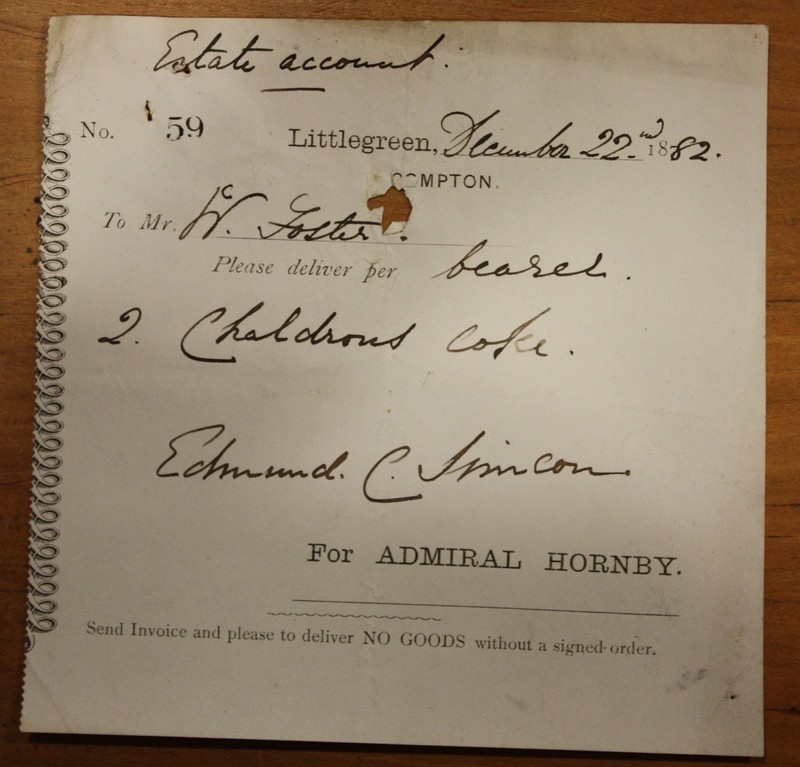 Estate account.
No. 59
Littlegreen, December 22nd 1882.
COMPTON.
To Mr. W. Foster.
Please deliver per bearer.
2. Chaldrons coke.
Edmund. C. Simcon.
For ADMIRAL HORNBY.
Send Invoice and please to deliver NO GOODS without a signed order.